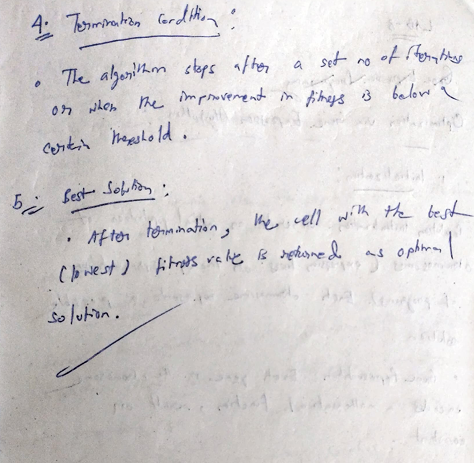 4. Termination Condition :
• The algorithm stops after a set no of iterations
or when the improvement in fitness is below a
certain threshold.
5. Best Solution :
• After termination, the cell with the best
(lowest) fitness value is returned as optimal
solution.